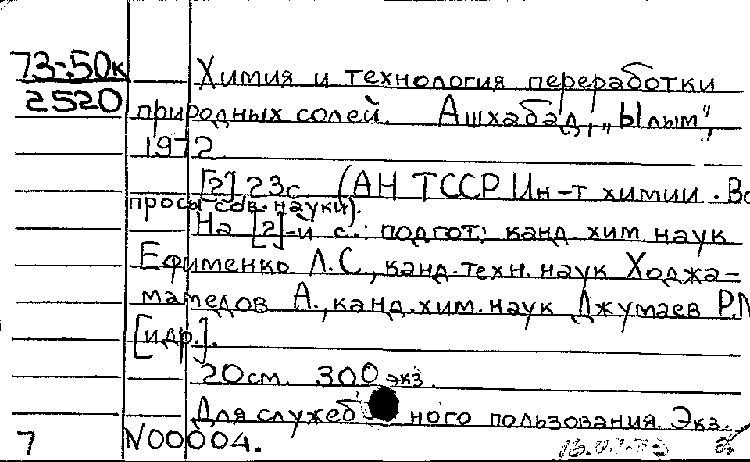 73-50к
2520
Химия и технология переработки
природных солей. Ашхабад, „Ылым",
1972
[2], 23с. (АН ТССР Ин-т химии. Во
просы сов. науки).
На [2]-й с.: подгот: канд хим наук
Ефименко Л.С., канд. техн. наук Ходжа-
мамедов А., канд. хим. наук Джумаев Р.М
[и др.].
20см. 300 экз.
Для служебного пользования. Экз.
7 N00004.